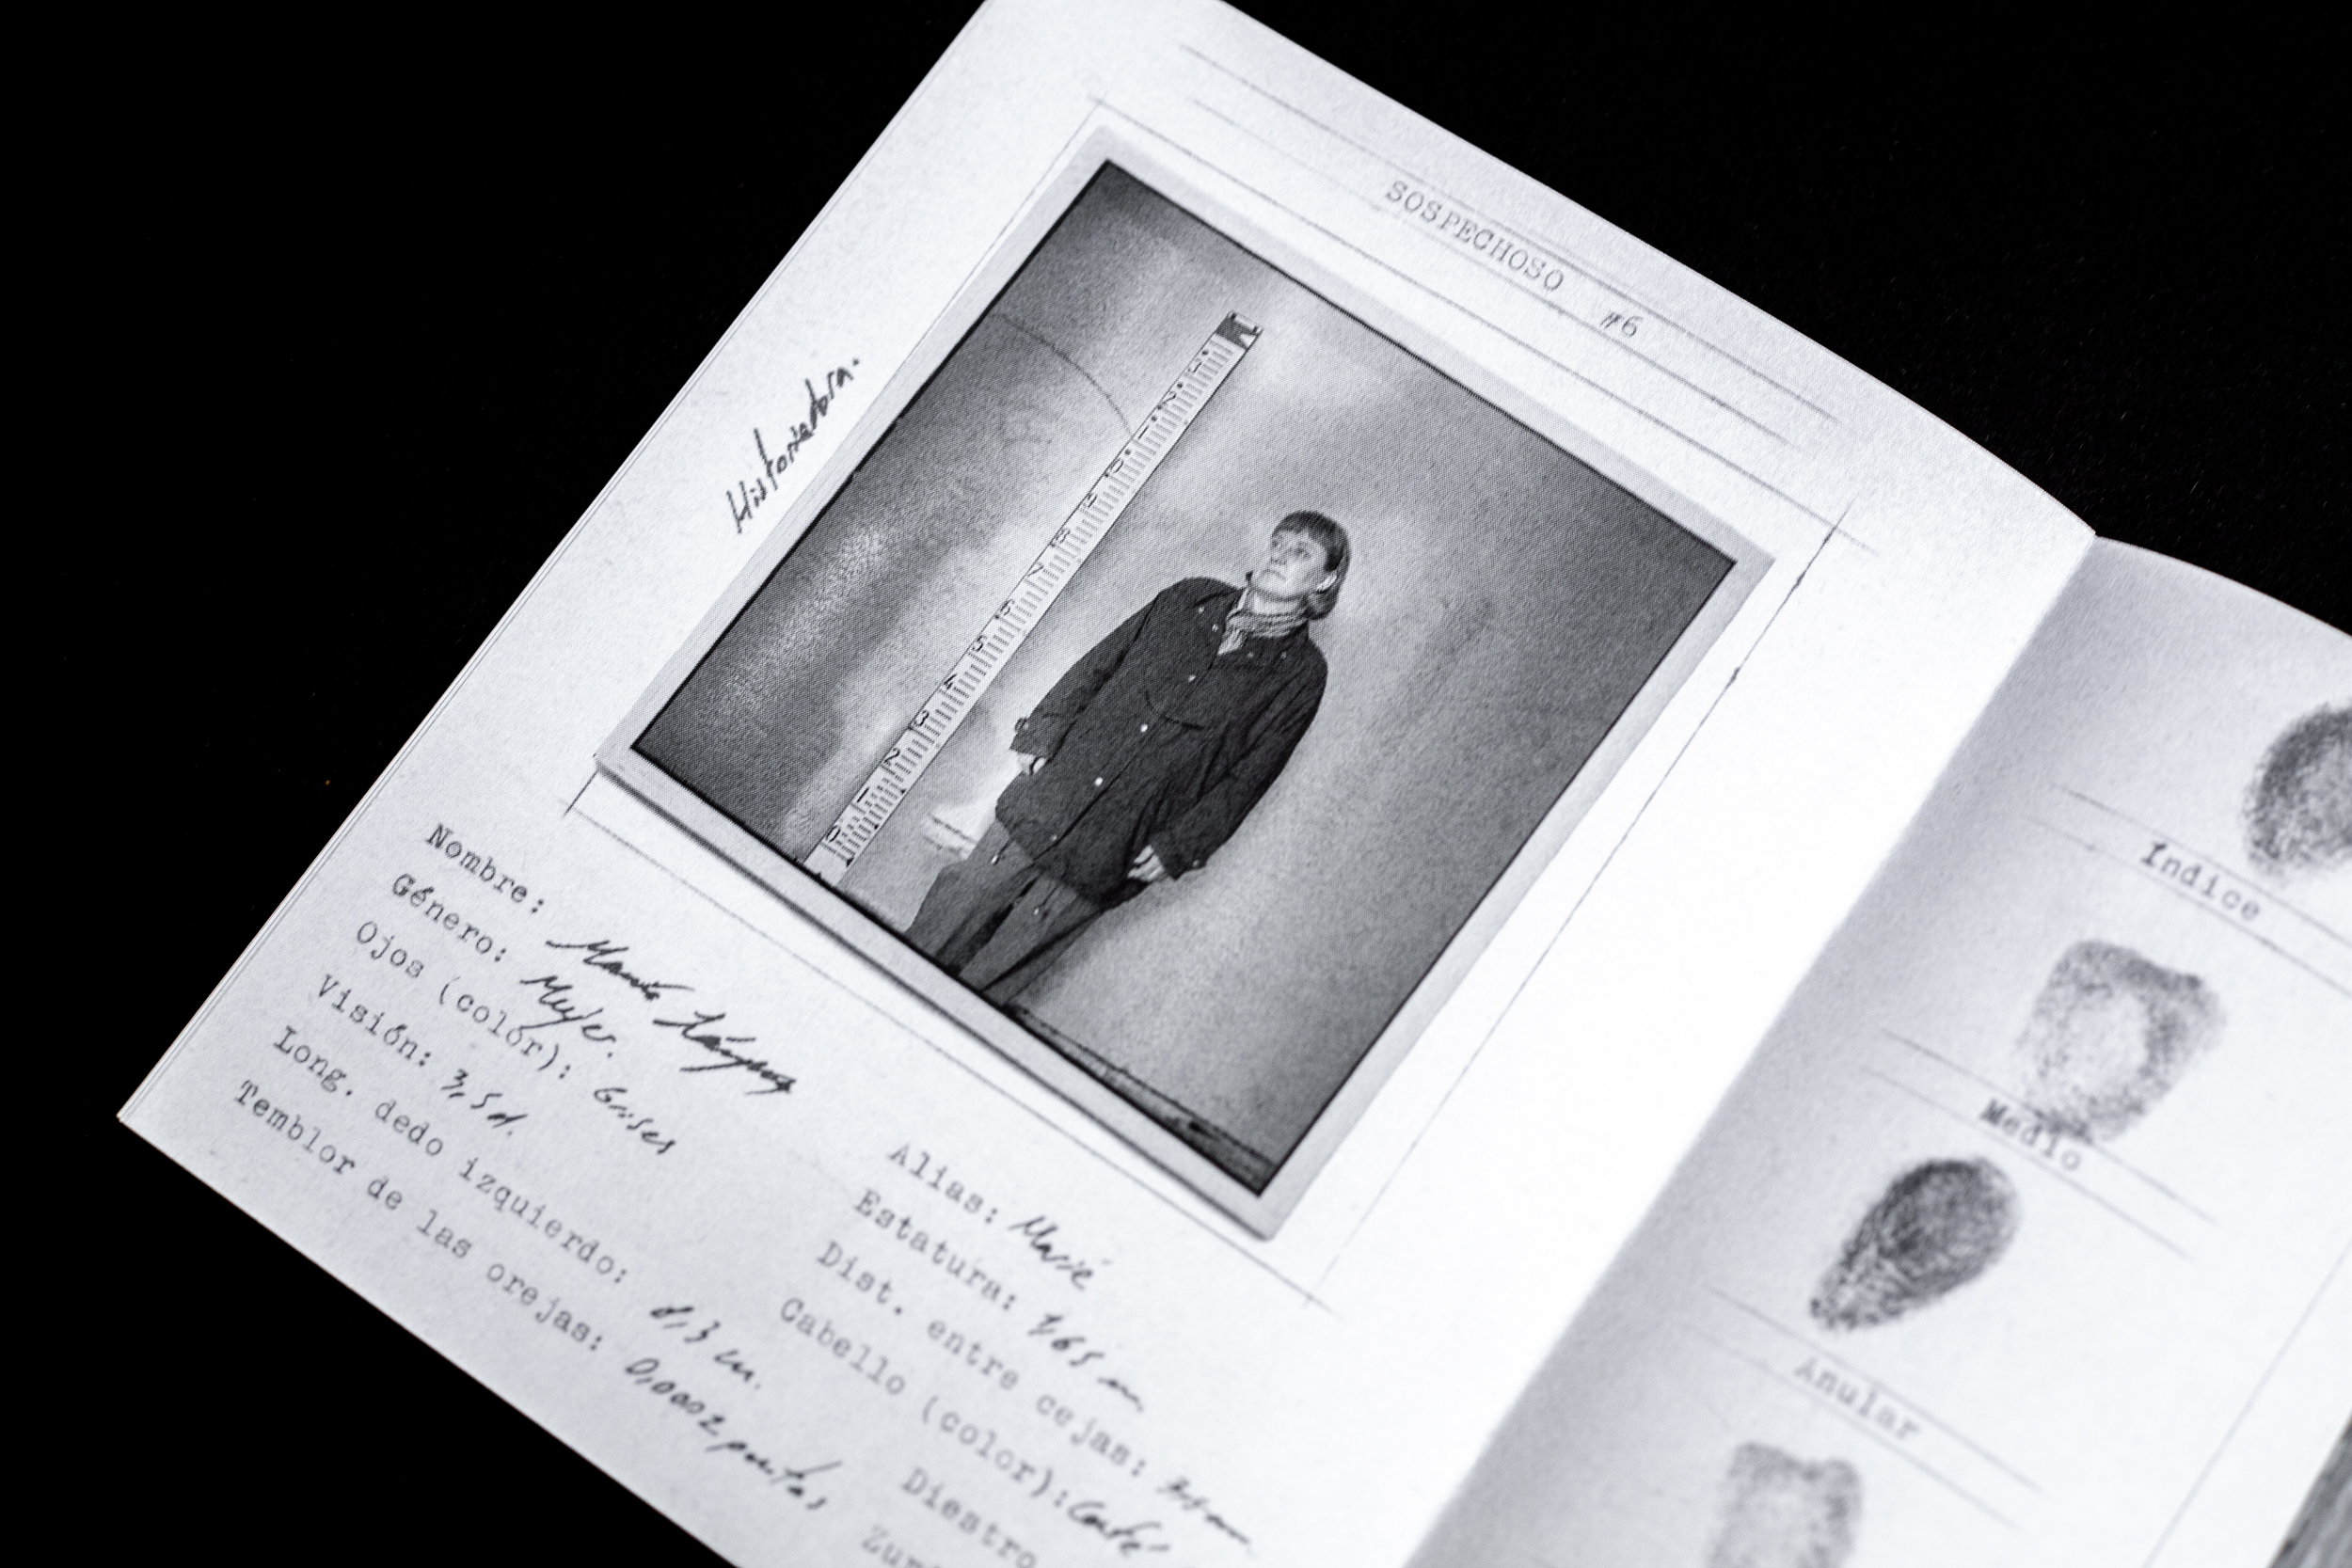 SOSPECHOSO #6
Historiadora.
Nombre: María
Género: Mujer.
Ojos (color): Grises
Visión: 3,5 d.
Long. dedo izquierdo: 8,3 cm.
Temblor de las orejas: 0,0002 puntos
Alias: Marié
Estatura: 1,65 m.
Dist. entre cejas:
Cabello (color): Café
Diestro
1
2
1
1
0
9
8
7
6
5
4
3
2
1
0
Índice
Medio
Anular